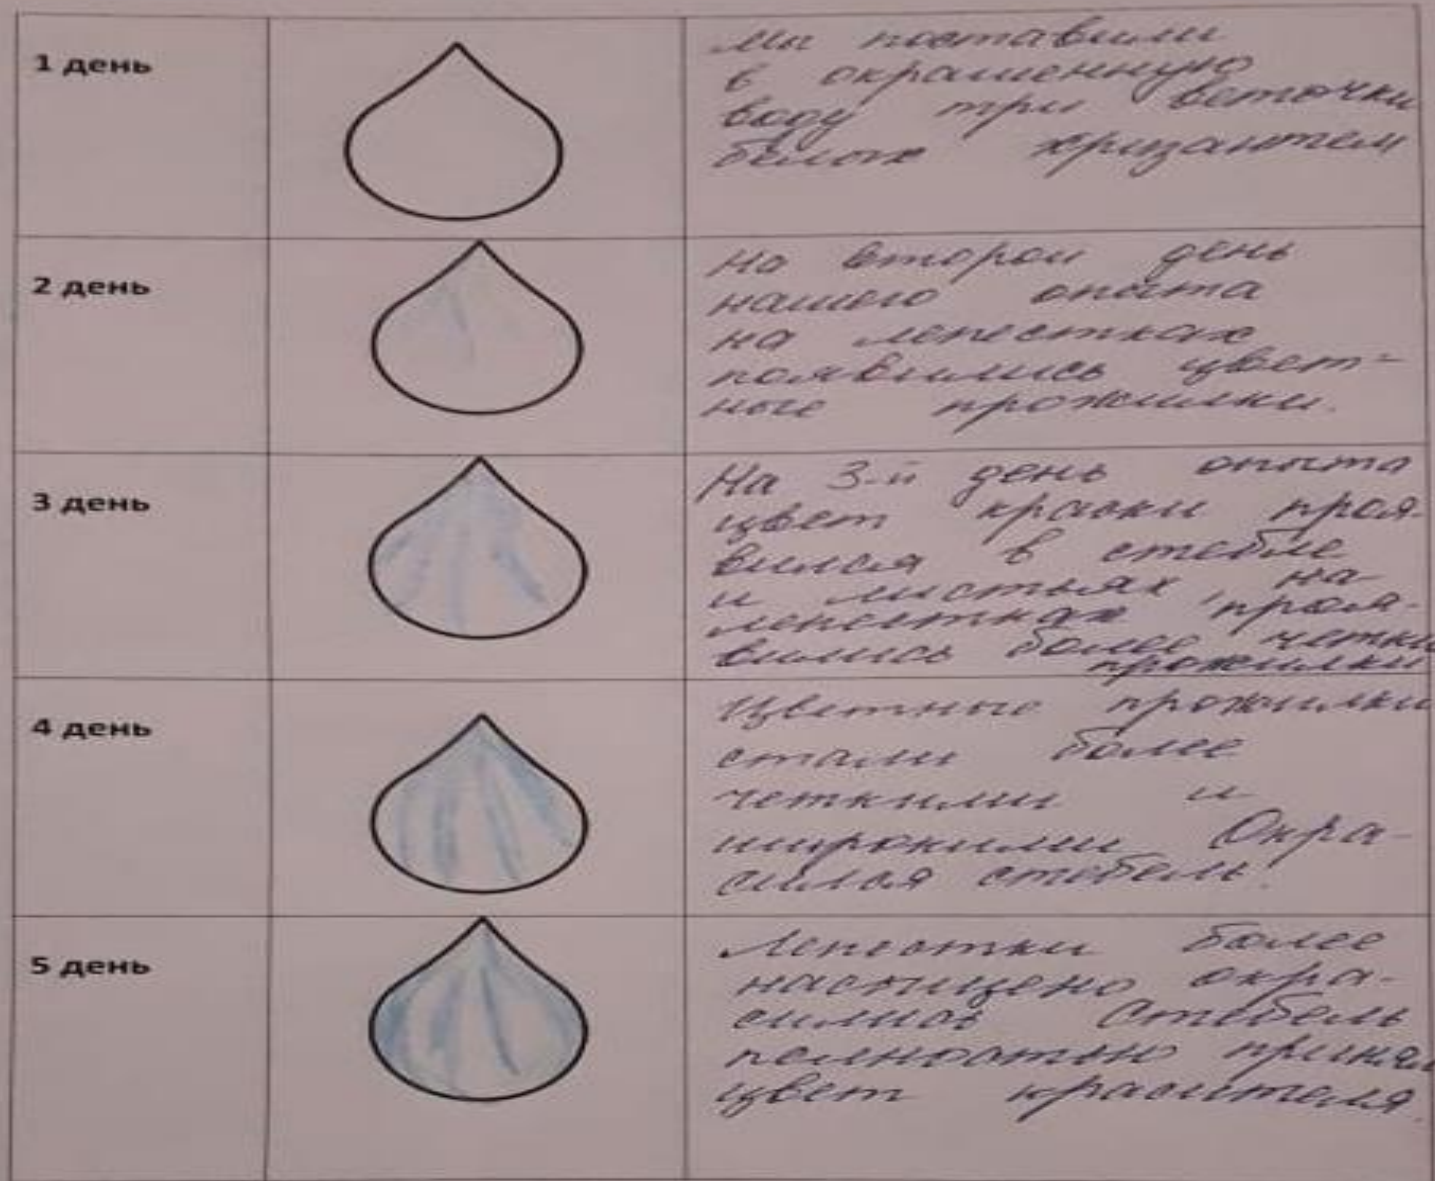 1 день
Мы поставили
в окрашенную
воду три веточки
белых хризантем
2 день
На второй день
нашего опыта
на лепестках
появились цвет=
ные прожилки.
3 день
На 3-й день опыта
цвет краски проя-
вился в стебле
и листьях, на
лепестках проя-
вились более четки
прожилки
4 день
Цветные прожилки
стали более
четкими и
широкими Окра-
сился стебель.
5 день
Лепестки более
насыщено окра-
сились Стебель
полностью принял
цвет красителя.